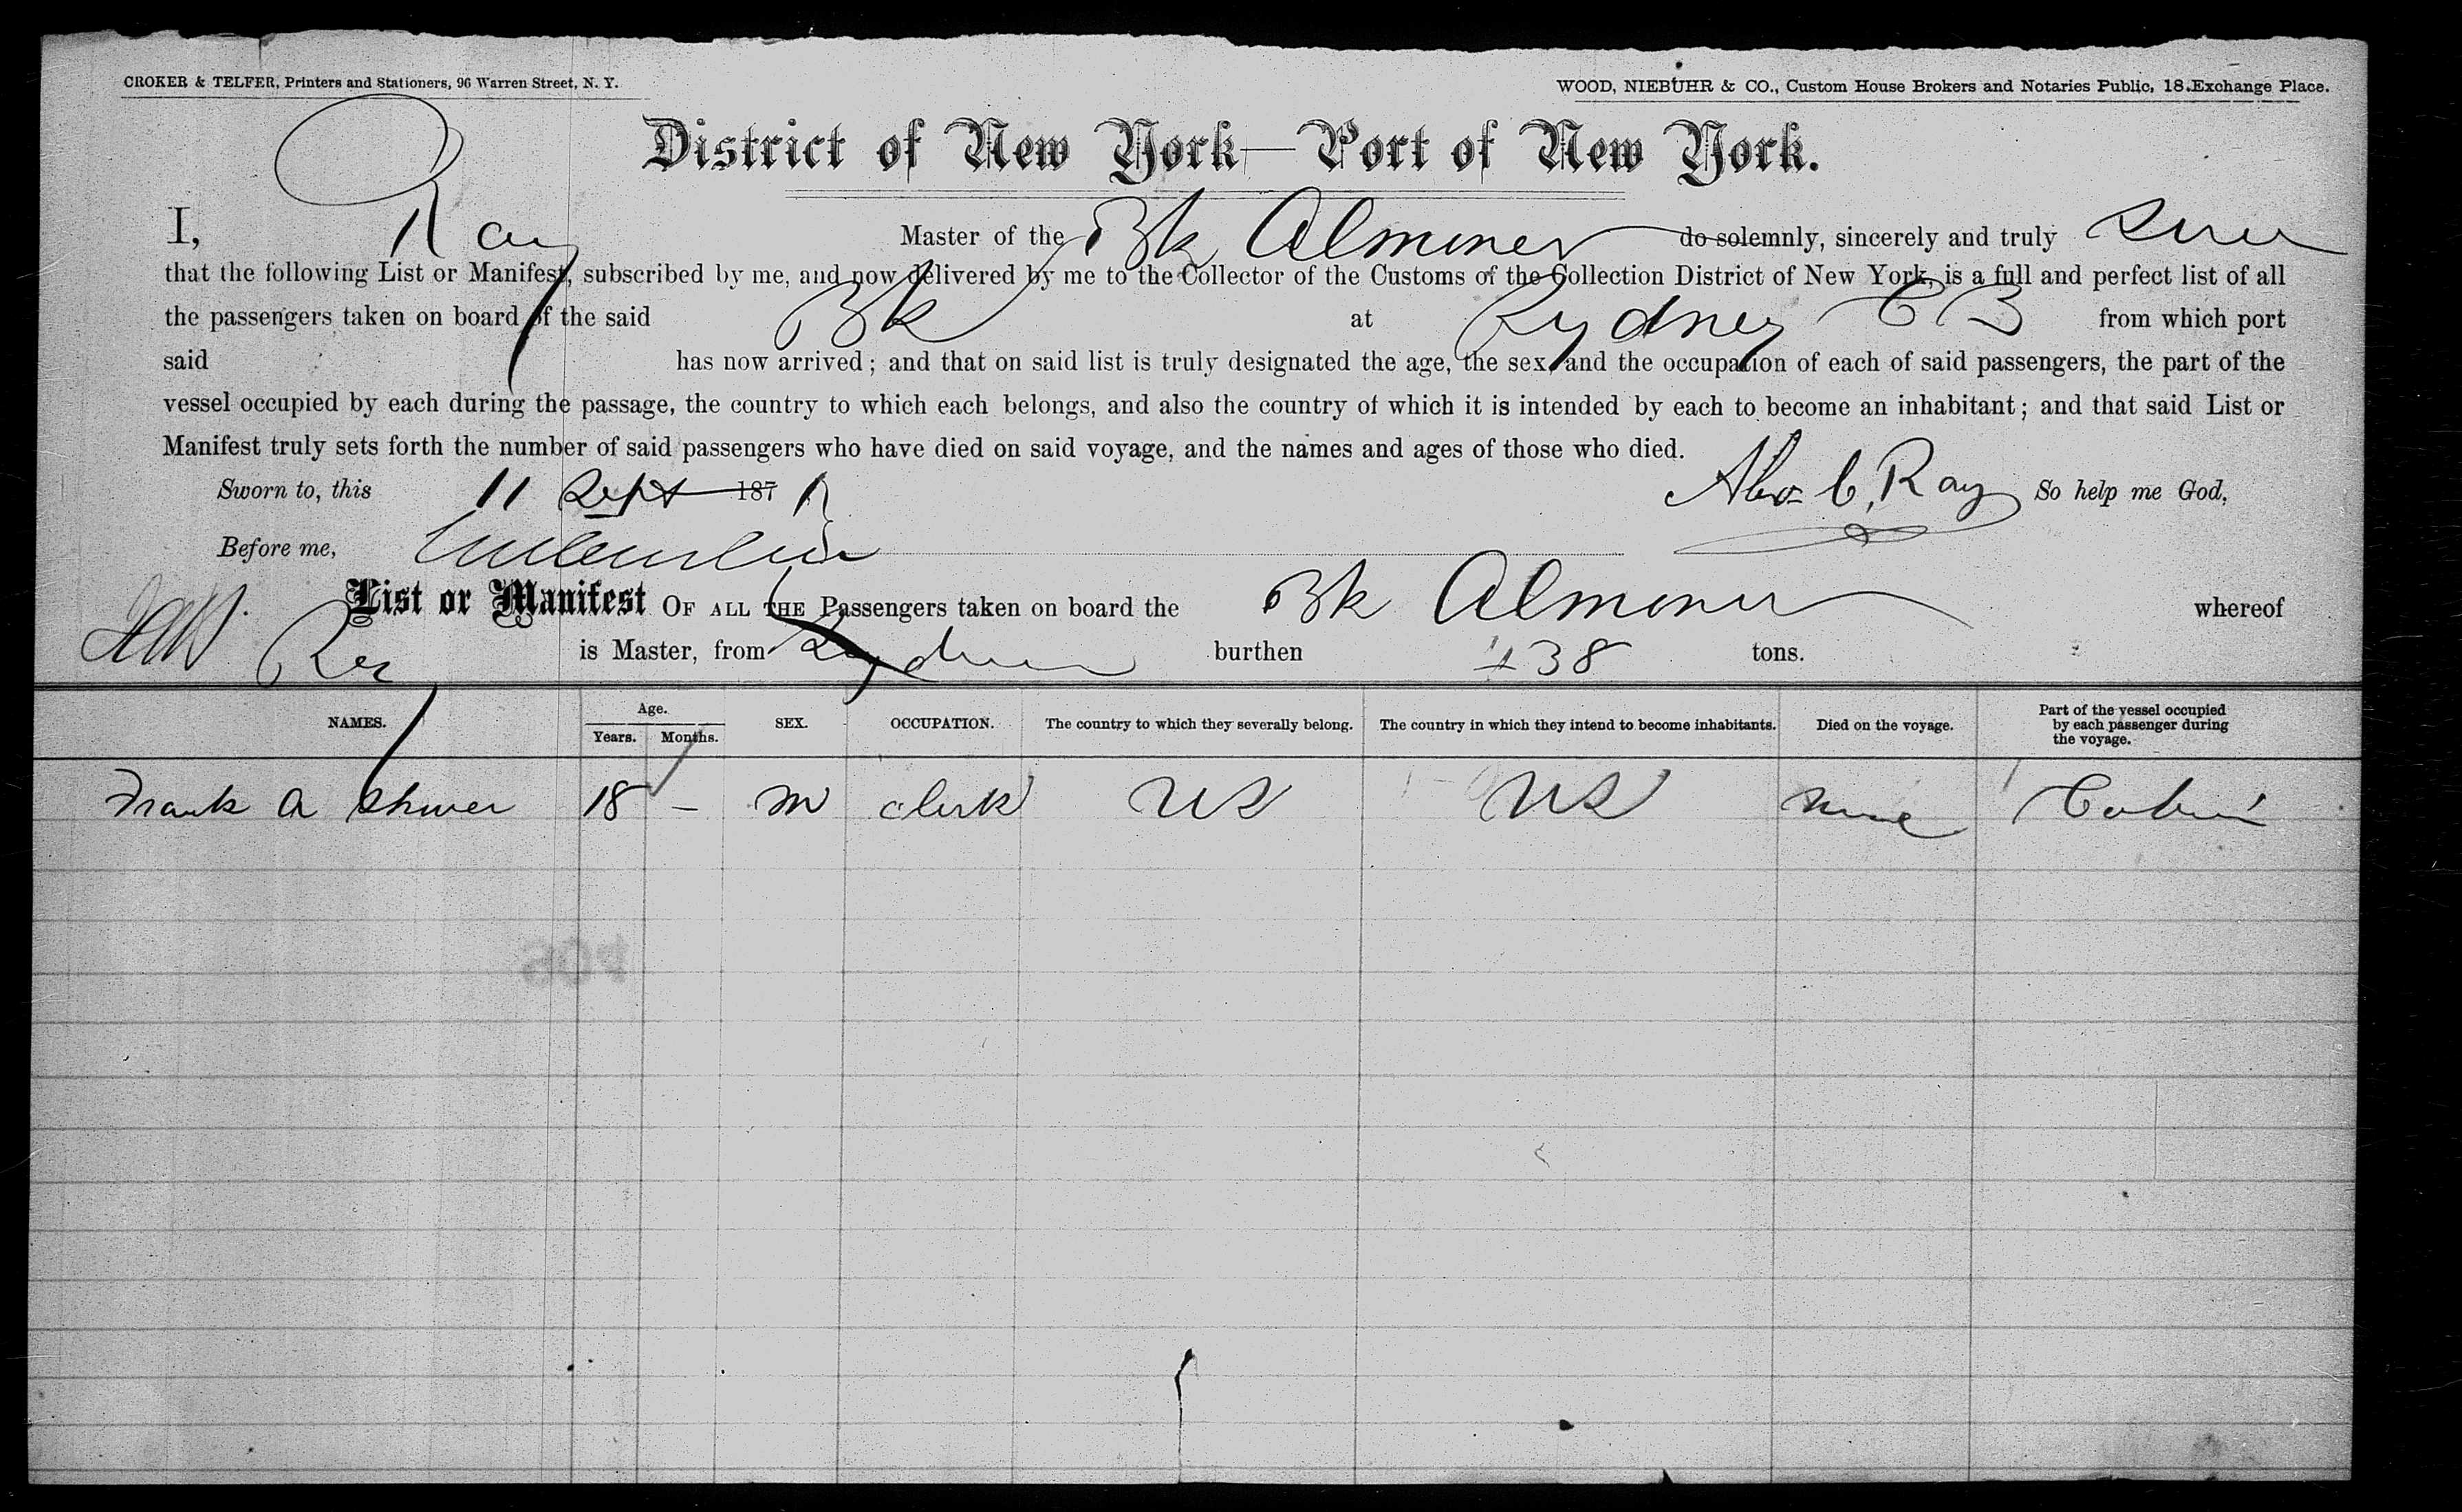 CROKER & TELFER, Printers and Stationers, 96 Warren Street, N. Y.
WOOD, NIEBUHR & CO., Custom House Brokers and Notaries Public, 18 Exchange Place.
District of New York—Port of New York.
I, Ray Master of the Bk Almoner do solemnly, sincerely and truly
that the following List or Manifest, subscribed by me, and now delivered by me to the Collector of the Customs of the Collection District of New York, is a full and perfect list of all
the passengers taken on board of the said Bk at Sydney C B from which port
said has now arrived; and that on said list is truly designated the age, the sex, and the occupation of each of said passengers, the part of the
vessel occupied by each during the passage, the country to which each belongs, and also the country of which it is intended by each to become an inhabitant; and that said List or
Manifest truly sets forth the number of said passengers who have died on said voyage, and the names and ages of those who died.
Sworn to, this 11 Sept 187 C. Ray So help me God,
Before me,
List or Manifest OF ALL THE Passengers taken on board the Bk Almoner whereof
Ray is Master, from Sydney burthen 438 tons.
NAMES. Age. Years. Months. SEX. OCCUPATION. The country to which they severally belong. The country in which they intend to become inhabitants. Died on the voyage. Part of the vessel occupied by each passenger during the voyage.
Frank A 18 – M Clerk US US None Cabin